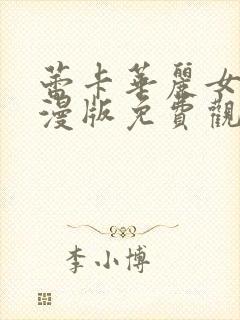 蕾卡華麗女
漫版免費觀
李小博